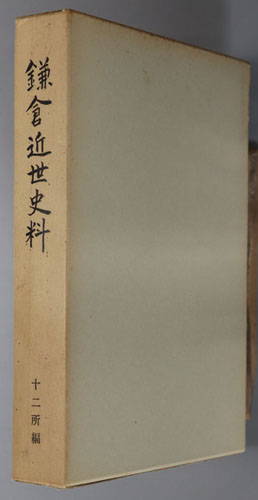 鎌倉近世史料
十二所編